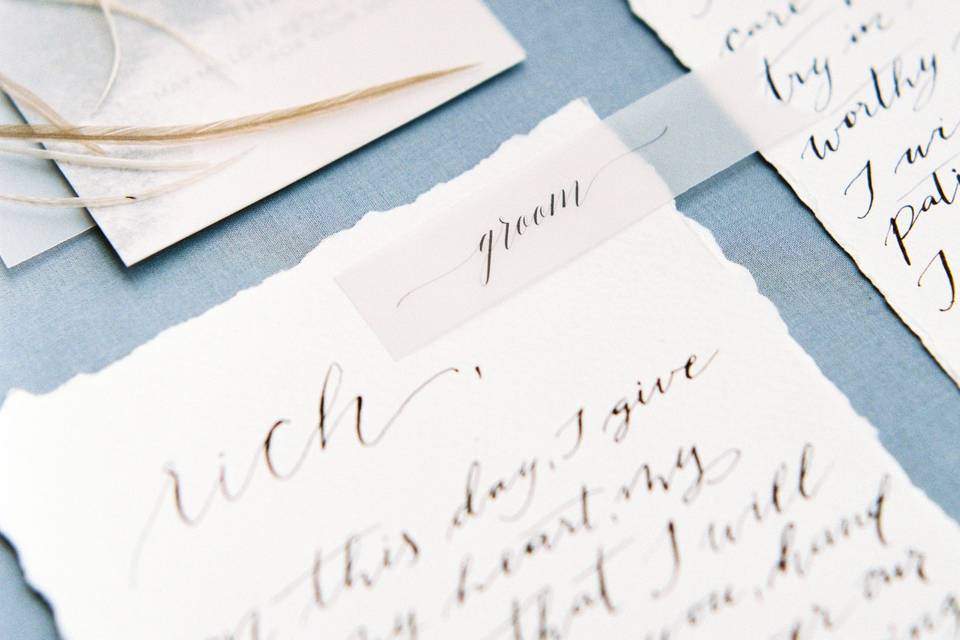 groom
rich,
on this day, I give
my heart. my
that I will
you, hand
our
care
try in
worthy
I wi
pati
I